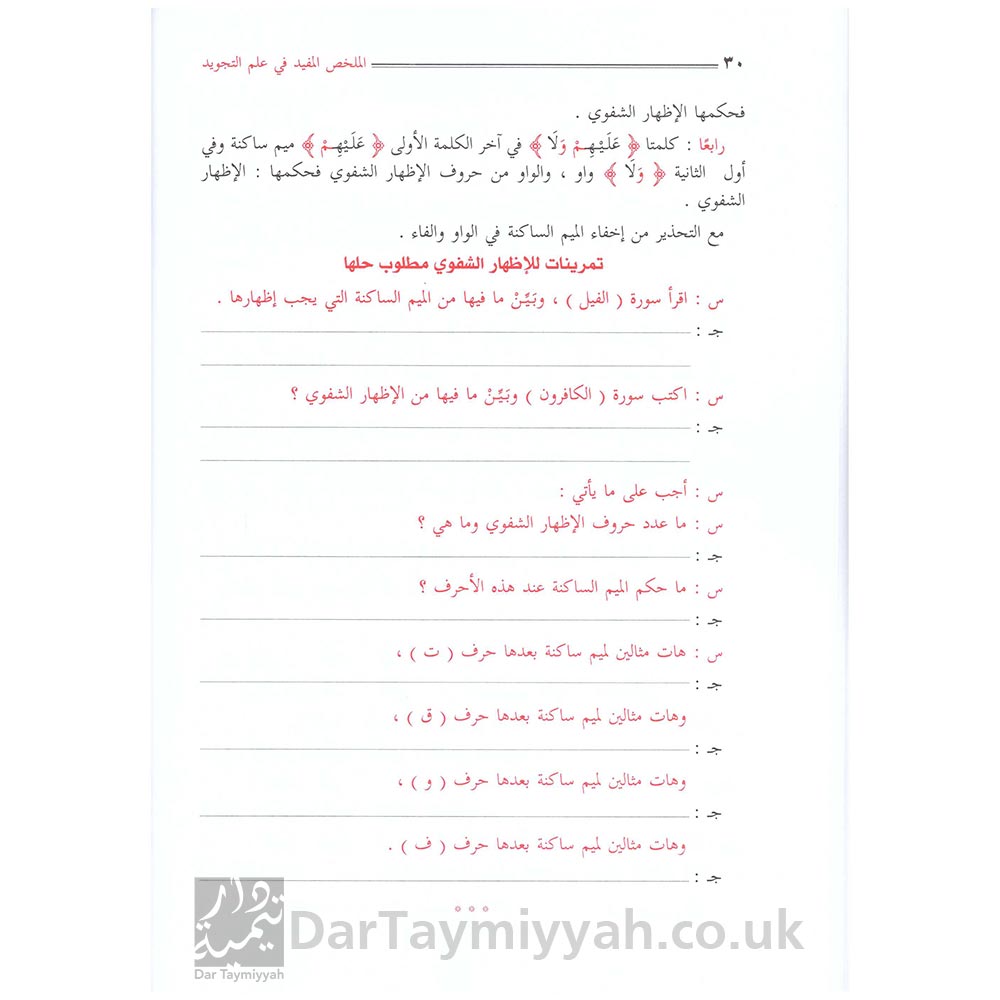 ٣٠ الملخص المفيد في علم التجويد
فحكمها الإظهار الشفوي .
رابعًا : كلمتا ﴿ عَلَيْهِمْ وَلَا ﴾ في آخر الكلمة الأولى ﴿ عَلَيْهِمْ ﴾ ميم ساكنة وفي
أول الثانية ﴿ وَلَا ﴾ واو ، والواو من حروف الإظهار الشفوي فحكمها : الإظهار
الشفوي .
مع التحذير من إخفاء الميم الساكنة في الواو والفاء .
تمرينات للإظهار الشفوي مطلوب حلها
س : اقرأ سورة ( الفيل ) ، وبَيِّنْ ما فيها من الميم الساكنة التي يجب إظهارها .
جـ :
س : اكتب سورة ( الكافرون ) وبَيِّنْ ما فيها من الإظهار الشفوي ؟
جـ :
س : أجب على ما يأتي :
س : ما عدد حروف الإظهار الشفوي وما هي ؟
جـ :
س : ما حكم الميم الساكنة عند هذه الأحرف ؟
جـ :
س : هات مثالين لميم ساكنة بعدها حرف ( ت ) ،
جـ :
وهات مثالين لميم ساكنة بعدها حرف ( ق ) ،
جـ :
وهات مثالين لميم ساكنة بعدها حرف ( و ) ،
جـ :
وهات مثالين لميم ساكنة بعدها حرف ( ف ) .
جـ :
دار تيمية
Dar Taymiyyah
DarTaymiyyah.co.uk